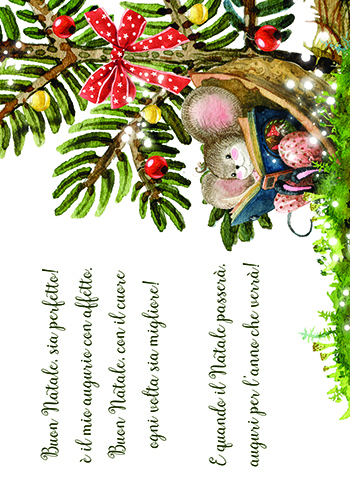 Buon Natale, sia perfetto!
è il mio augurio con affetto.
Buon Natale, con il cuore
ogni volta sia migliore!
E quando il Natale passerà,
auguri per l'anno che verrà!